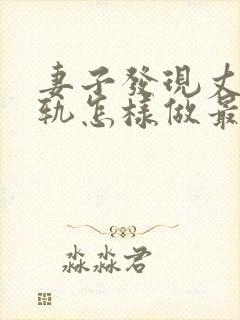 妻子發現丈
軌怎樣做最
淼淼君